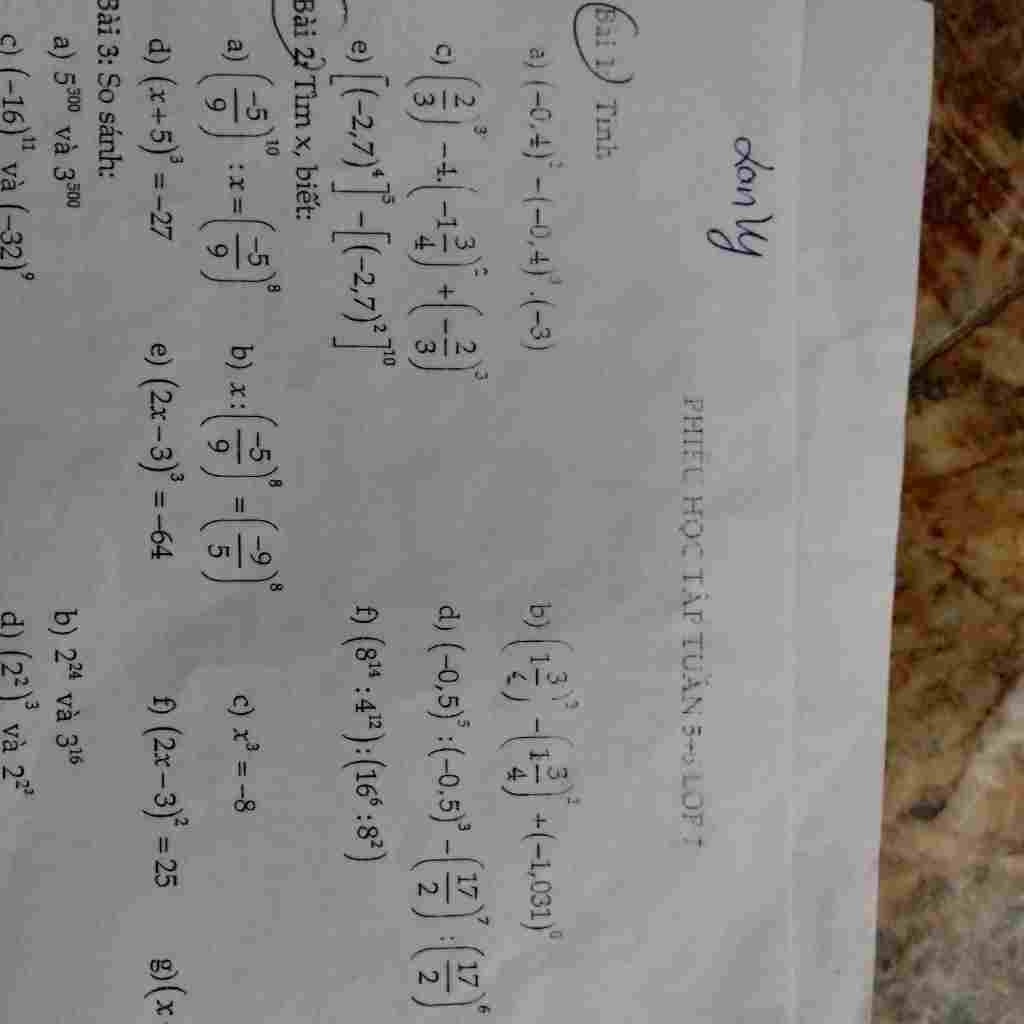 Lan Vy
PHIẾU HỌC TẬP TUẦN 5+6 LỚP 7
Bài 1: Tính
a) (-0,4)² - (-0,4)³.(-3) b) (1 3/4)³ - (1 3/4)² + (-1,031)⁰
c) (2/3)³ - 4.(-1 3/4)² + (-2/3)³ d) (-0,5)⁵ : (-0,5)³ - (17/2)⁷ : (17/2)⁶
e) [(-2,7)⁴]⁵ - [(-2,7)²]¹⁰ f) (8¹⁴ : 4¹²) : (16⁶ : 8²)
Bài 2: Tìm x, biết:
a) (-5/9)¹⁰ : x = (-5/9)⁸ b) x : (-5/9)⁸ = (-9/5)⁸ c) x³ = -8
d) (x+5)³ = -27 e) (2x-3)³ = -64 f) (2x-3)² = 25 g) (x
Bài 3: So sánh:
a) 5³⁰⁰ và 3⁵⁰⁰ b) 2²⁴ và 3¹⁶
c) (-16)¹¹ và (-32)⁹ d) (2²)³ và 2^2^3